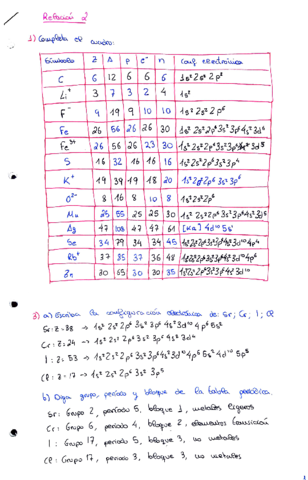 Relación 2
1) Completa el cuadro:
Símbolo Z A p e⁻ n conf. electrónica
C 6 12 6 6 6 1s² 2s² 2p²
Li⁺ 3 7 3 2 4 1s²
F⁻ 9 19 9 10 10 1s² 2s² 2p⁶
Fe 26 56 26 26 30 1s² 2s² 2p⁶ 3s² 3p⁶ 4s² 3d⁶
Fe³⁺ 26 56 26 23 30
S 16 32 16 16 16 1s² 2s² 2p⁶ 3s² 3p⁴
K⁺ 19 39 19 18 20 1s² 2s² 2p⁶ 3s² 3p⁶
O²⁻ 8 16 8 10 8 1s² 2s² 2p⁶
Mn 25 55 25 25 30 1s² 2s² 2p⁶ 3s² 3p⁶ 4s² 3d⁵
Ag 47 108 47 47 61 [Kr] 4d¹⁰ 5s¹
Se 34 79 34 34 45 1s² 2s² 2p⁶ 3s² 3p⁶ 4s² 3d¹⁰ 4p⁴
Rb⁺ 37 85 37 36 48
Zn 30 65 30 30 35 1s² 2s² 2p⁶ 3s² 3p⁶ 4s² 3d¹⁰
3) a) Escriba la configuración electrónica de: Sr, Cr, I, Cl
Sr: Z=38 → 1s² 2s² 2p⁶ 3s² 3p⁶ 4s² 3d¹⁰ 4p⁶ 5s²
Cr: Z=24 → 1s² 2s² 2p⁶ 3s² 3p⁶ 4s² 3d⁴
I: Z=53 → 1s² 2s² 2p⁶ 3s² 3p⁶ 4s² 3d¹⁰ 4p⁶ 5s² 4d¹⁰ 5p⁵
Cl: Z=17 → 1s² 2s² 2p⁶ 3s² 3p⁵
b) Diga grupo, período y bloque de la tabla periódica.
Sr: Grupo 2, período 5, bloque 1, metales ligeros
Cr: Grupo 6, período 4, bloque 2, elementos transición
I: Grupo 17, período 5, bloque 3, no metales
Cl: Grupo 17, periodo 3, bloque 3, no metales